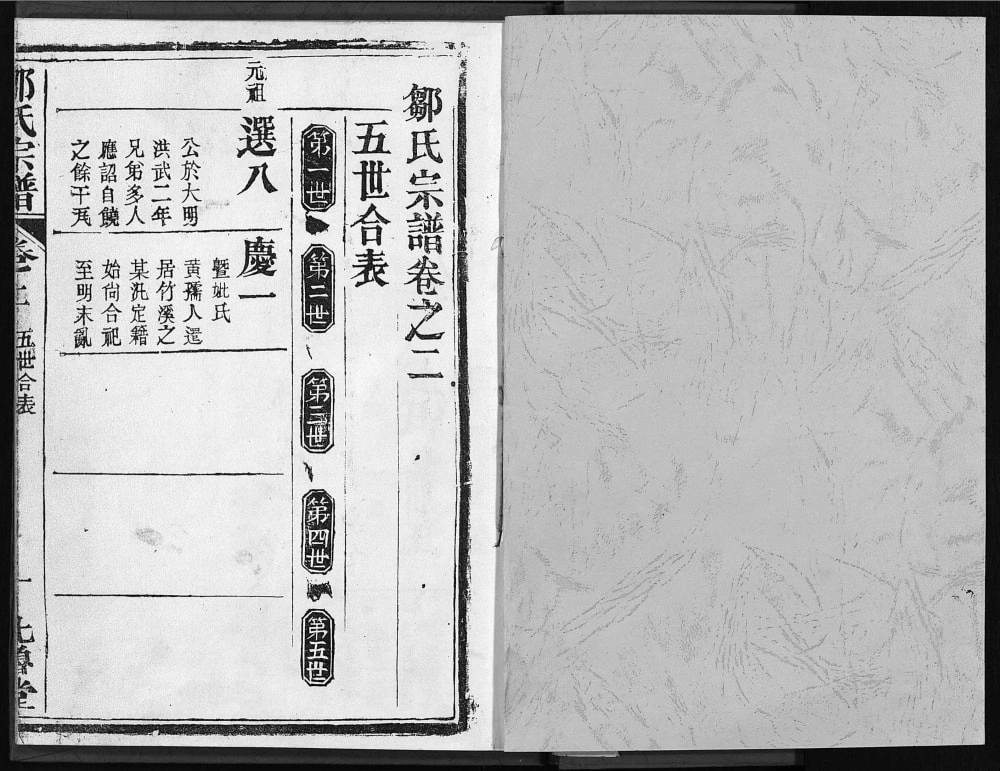 鄒氏宗譜卷之二
五世合表
第一世
第二世
第三世
第四世
第五世
元祖
選八
公於大明
洪武二年
兄弟多人
應詔自饒
之餘干瓦
慶一
暨妣氏
黃孺人遷
居竹溪之
某氿定籍
始尙合祀
至明末亂
鄒氏宗譜
卷之二
五世合表
一